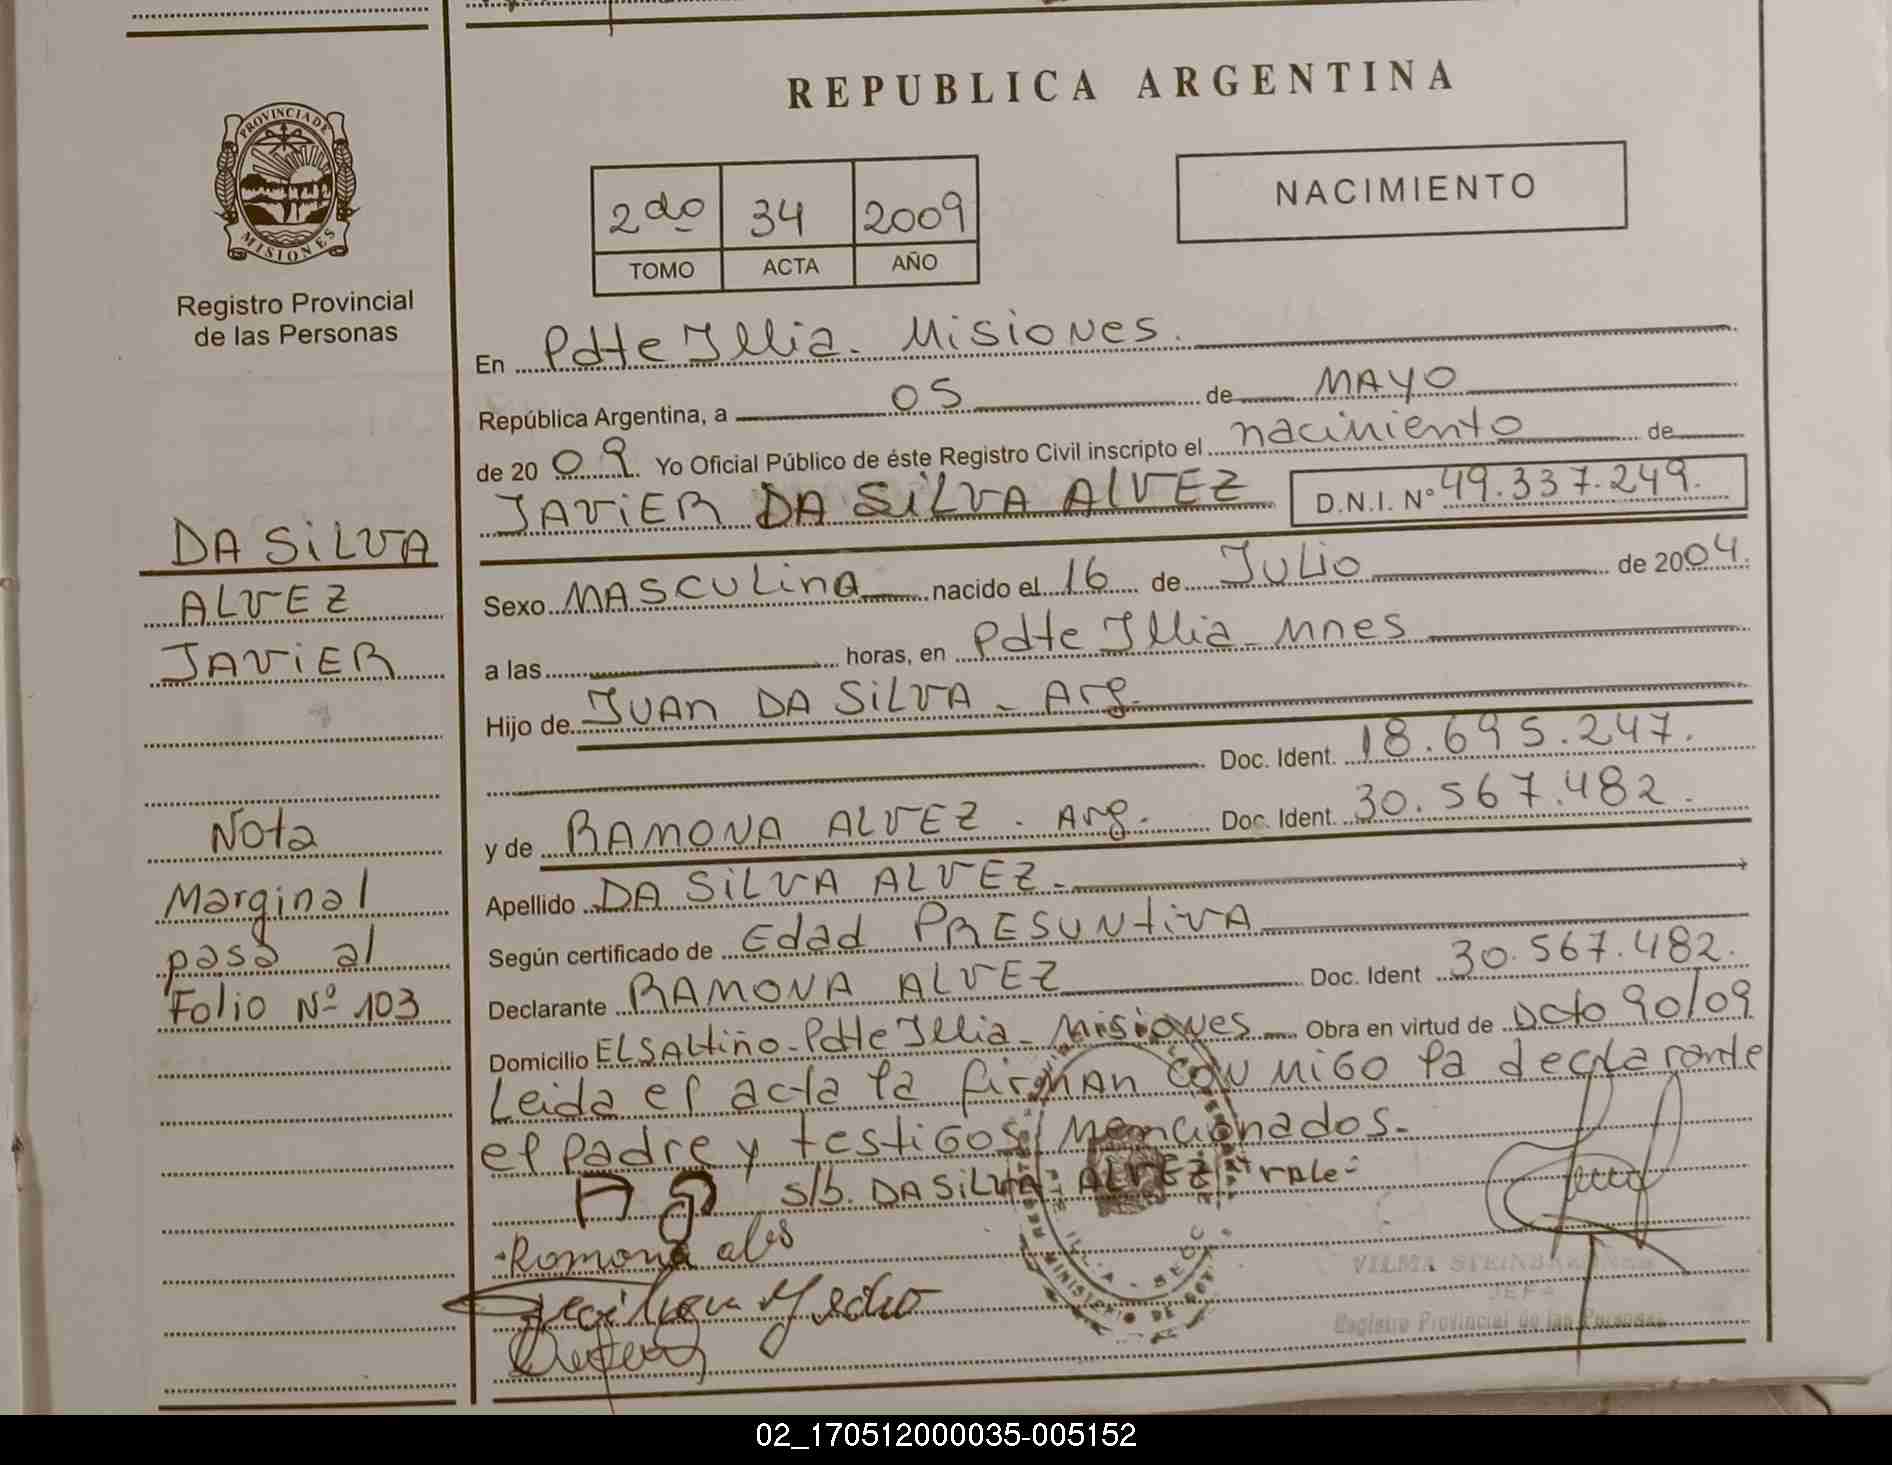 REPUBLICA ARGENTINA
PROVINCIA DE
MISIONES
Registro Provincial
de las Personas
2do 34 2009
TOMO ACTA AÑO
NACIMIENTO
En Pdte Illia. Misiones.
República Argentina, a 05 de MAYO
de 2009. Yo Oficial Público de éste Registro Civil inscripto el nacimiento de
JAVIER DA SILVA ALVEZ D.N.I. Nº 49.337.249.
Sexo MASCULINA nacido el 16 de JULIO de 2004.
a las horas, en Pdte Illia - Mnes
Hijo de JUAN DA SILVA - Arg.
Doc. Ident. 18.695.247.
y de RAMONA ALVEZ . Arg. Doc. Ident. 30.567.482.
Apellido DA SILVA ALVEZ.
Según certificado de Edad PRESUNTIVA
Declarante RAMONA ALVEZ Doc. Ident 30.567.482.
Domicilio EL SALTIÑO - Pdte Illia - Misiones Obra en virtud de Dcto 90/09
Leida el acta la firman conmigo la declarante
el padre y testigos mencionados.
s/b. DA SILVA ALVEZ vale
Romona
VILMA
JEFE
Registro Provincial de las Personas
DA SILVA
ALVEZ
JAVIER
Nota
Marginal
pasa al
Folio Nº 103
02_170512000035-005152